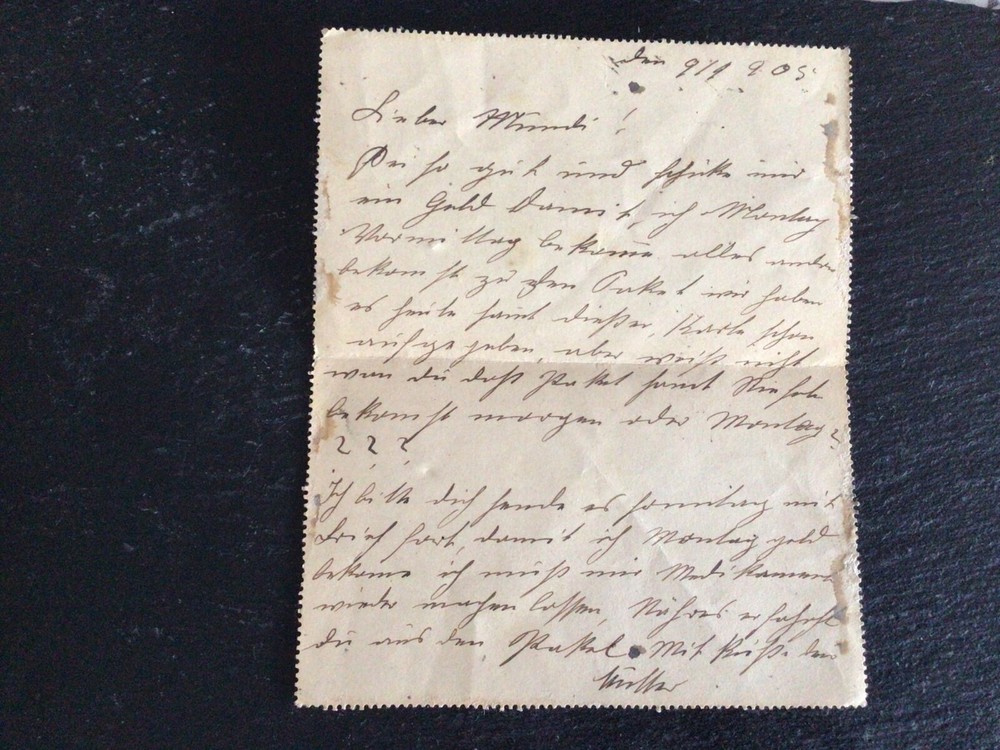 den 9/9 905
Lieber Mundi!
Sei so gut und schicke mir
ein Geld damit ich Montag
Vormittag bekome alles andre
bekomst zu den Paket wir haben
es heute samt dießer Karte schon
aufgegeben, aber weiß nicht
wan du daß Paket samt
bekomst morgen oder Montag?
? ? ?
Ich bitte dich sende es sonntag mit
fort, damit ich Montag geld
bekome ich muß mir Medikament
wieder machen lassen, Nähres erfahrst
du aus den Paket. Mit Küße deine
Mutter